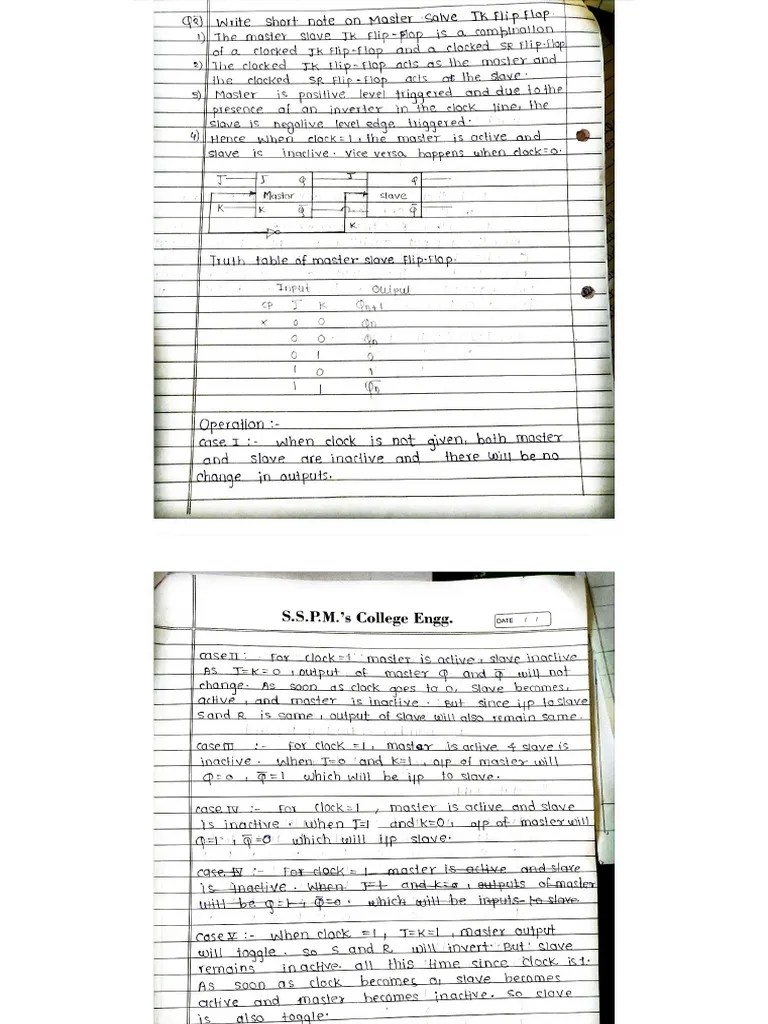 Q2) Write short note on Master Salve JK Flip Flop
1) The master slave JK flip-flop is a combination
of a clocked JK flip-flop and a clocked SR flip-flop
2) The clocked JK flip-flop acts as the master and
the clocked SR flip-flop acts at the slave.
3) Master is positive level triggered and due to the
presence of an inverter in the clock line, the
slave is negative level edge triggered.
4) Hence when clock=1, the master is active and
slave is inactive. vice versa happens when clock=0.
J J Q J Q
Master slave
K K Q̅ Q̅
K
Truth table of master slave flip-flop.
Input Output
CP J K Qn+1
x 0 0 Qn
0 0 Qn
0 1 0
1 0 1
1 1 Q̅n
Operation :-
case I :- when clock is not given, both master
and slave are inactive and there will be no
change in outputs.
S.S.P.M.'s College Engg.
DATE / /
case II : For clock=1 master is active, slave inactive
As J=K=0, output of master Q and Q̅ will not
change. As soon as clock goes to 0, slave becomes,
active, and master is inactive. But since i/p to slave
S and R is same, output of slave will also remain same.
case III :- For clock =1, master is active & slave is
inactive. when J=0 and K=1, o/p of master will
Q=0, Q̅=1 which will be i/p to slave.
case IV :- For clock=1, master is active and slave
is inactive. when J=1 and K=0, o/p of master will
Q=1, Q̅=0 which will i/p slave.
case IV :- For clock = 1 master is active and slave
is inactive. When J=1 and K=0, outputs of master
will be Q=1, Q̅=0. which will be inputs to slave
case V :- when clock =1, J=K=1, master output
will toggle. So S and R will invert. But slave
remains inactive all this time since clock is 1.
As soon as clock becomes 0, slave becomes
active and master becomes inactive. So slave
is also toggle.